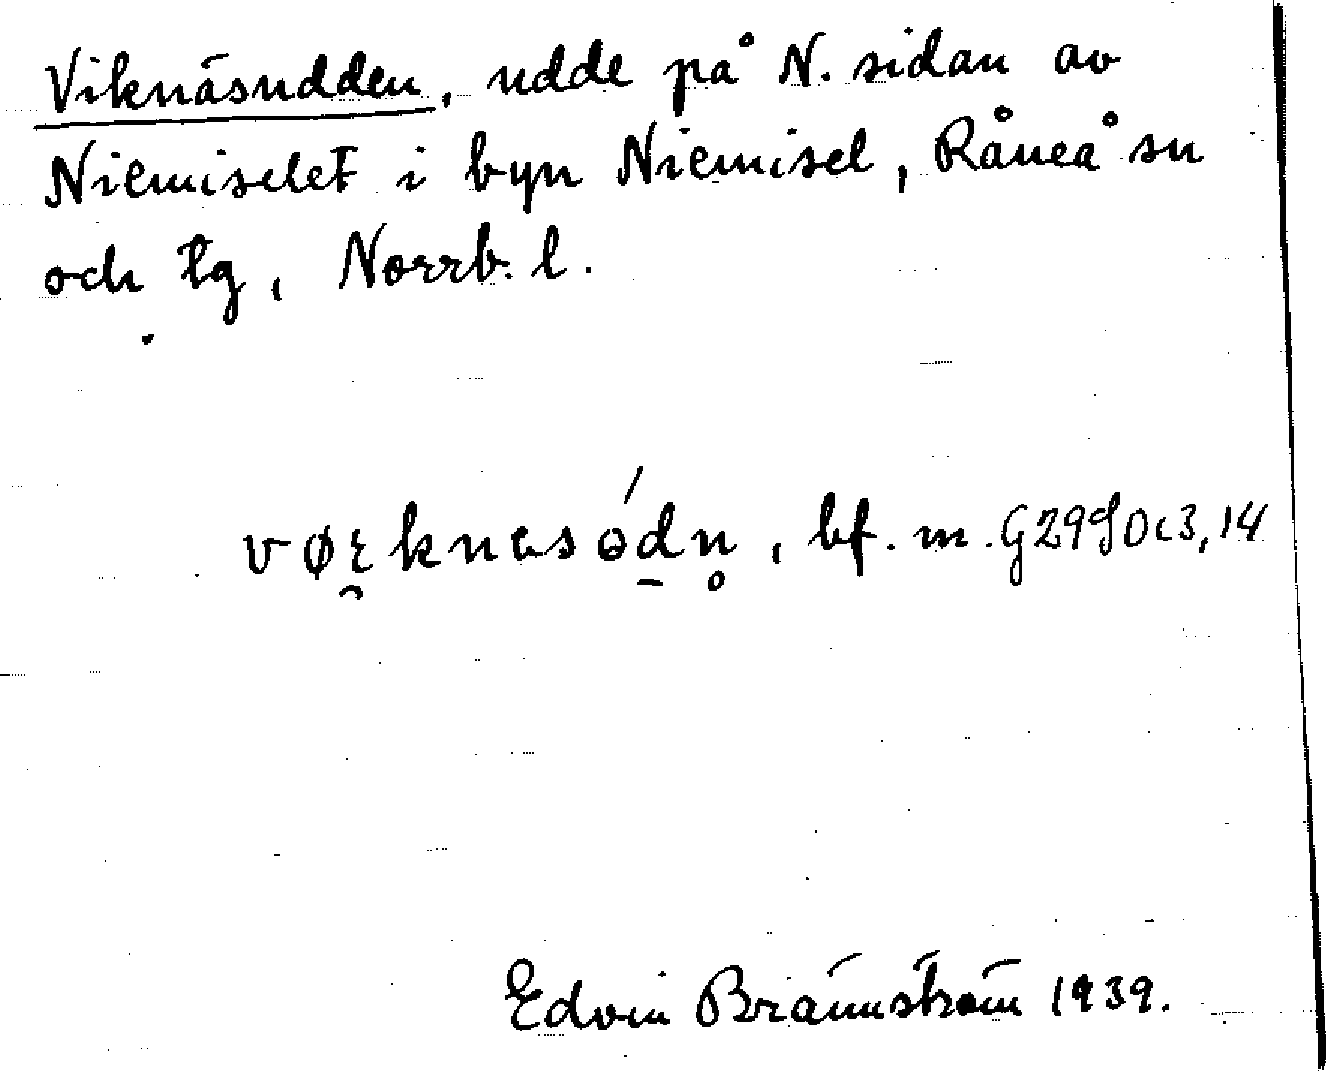 Viknäsudden, udde på N. sidan av
Niemiselet i byn Niemisel, Råneå sn
och tg, Norrb. l.
bf. m. G29g0c3,14
Edvin Brännström 1939.